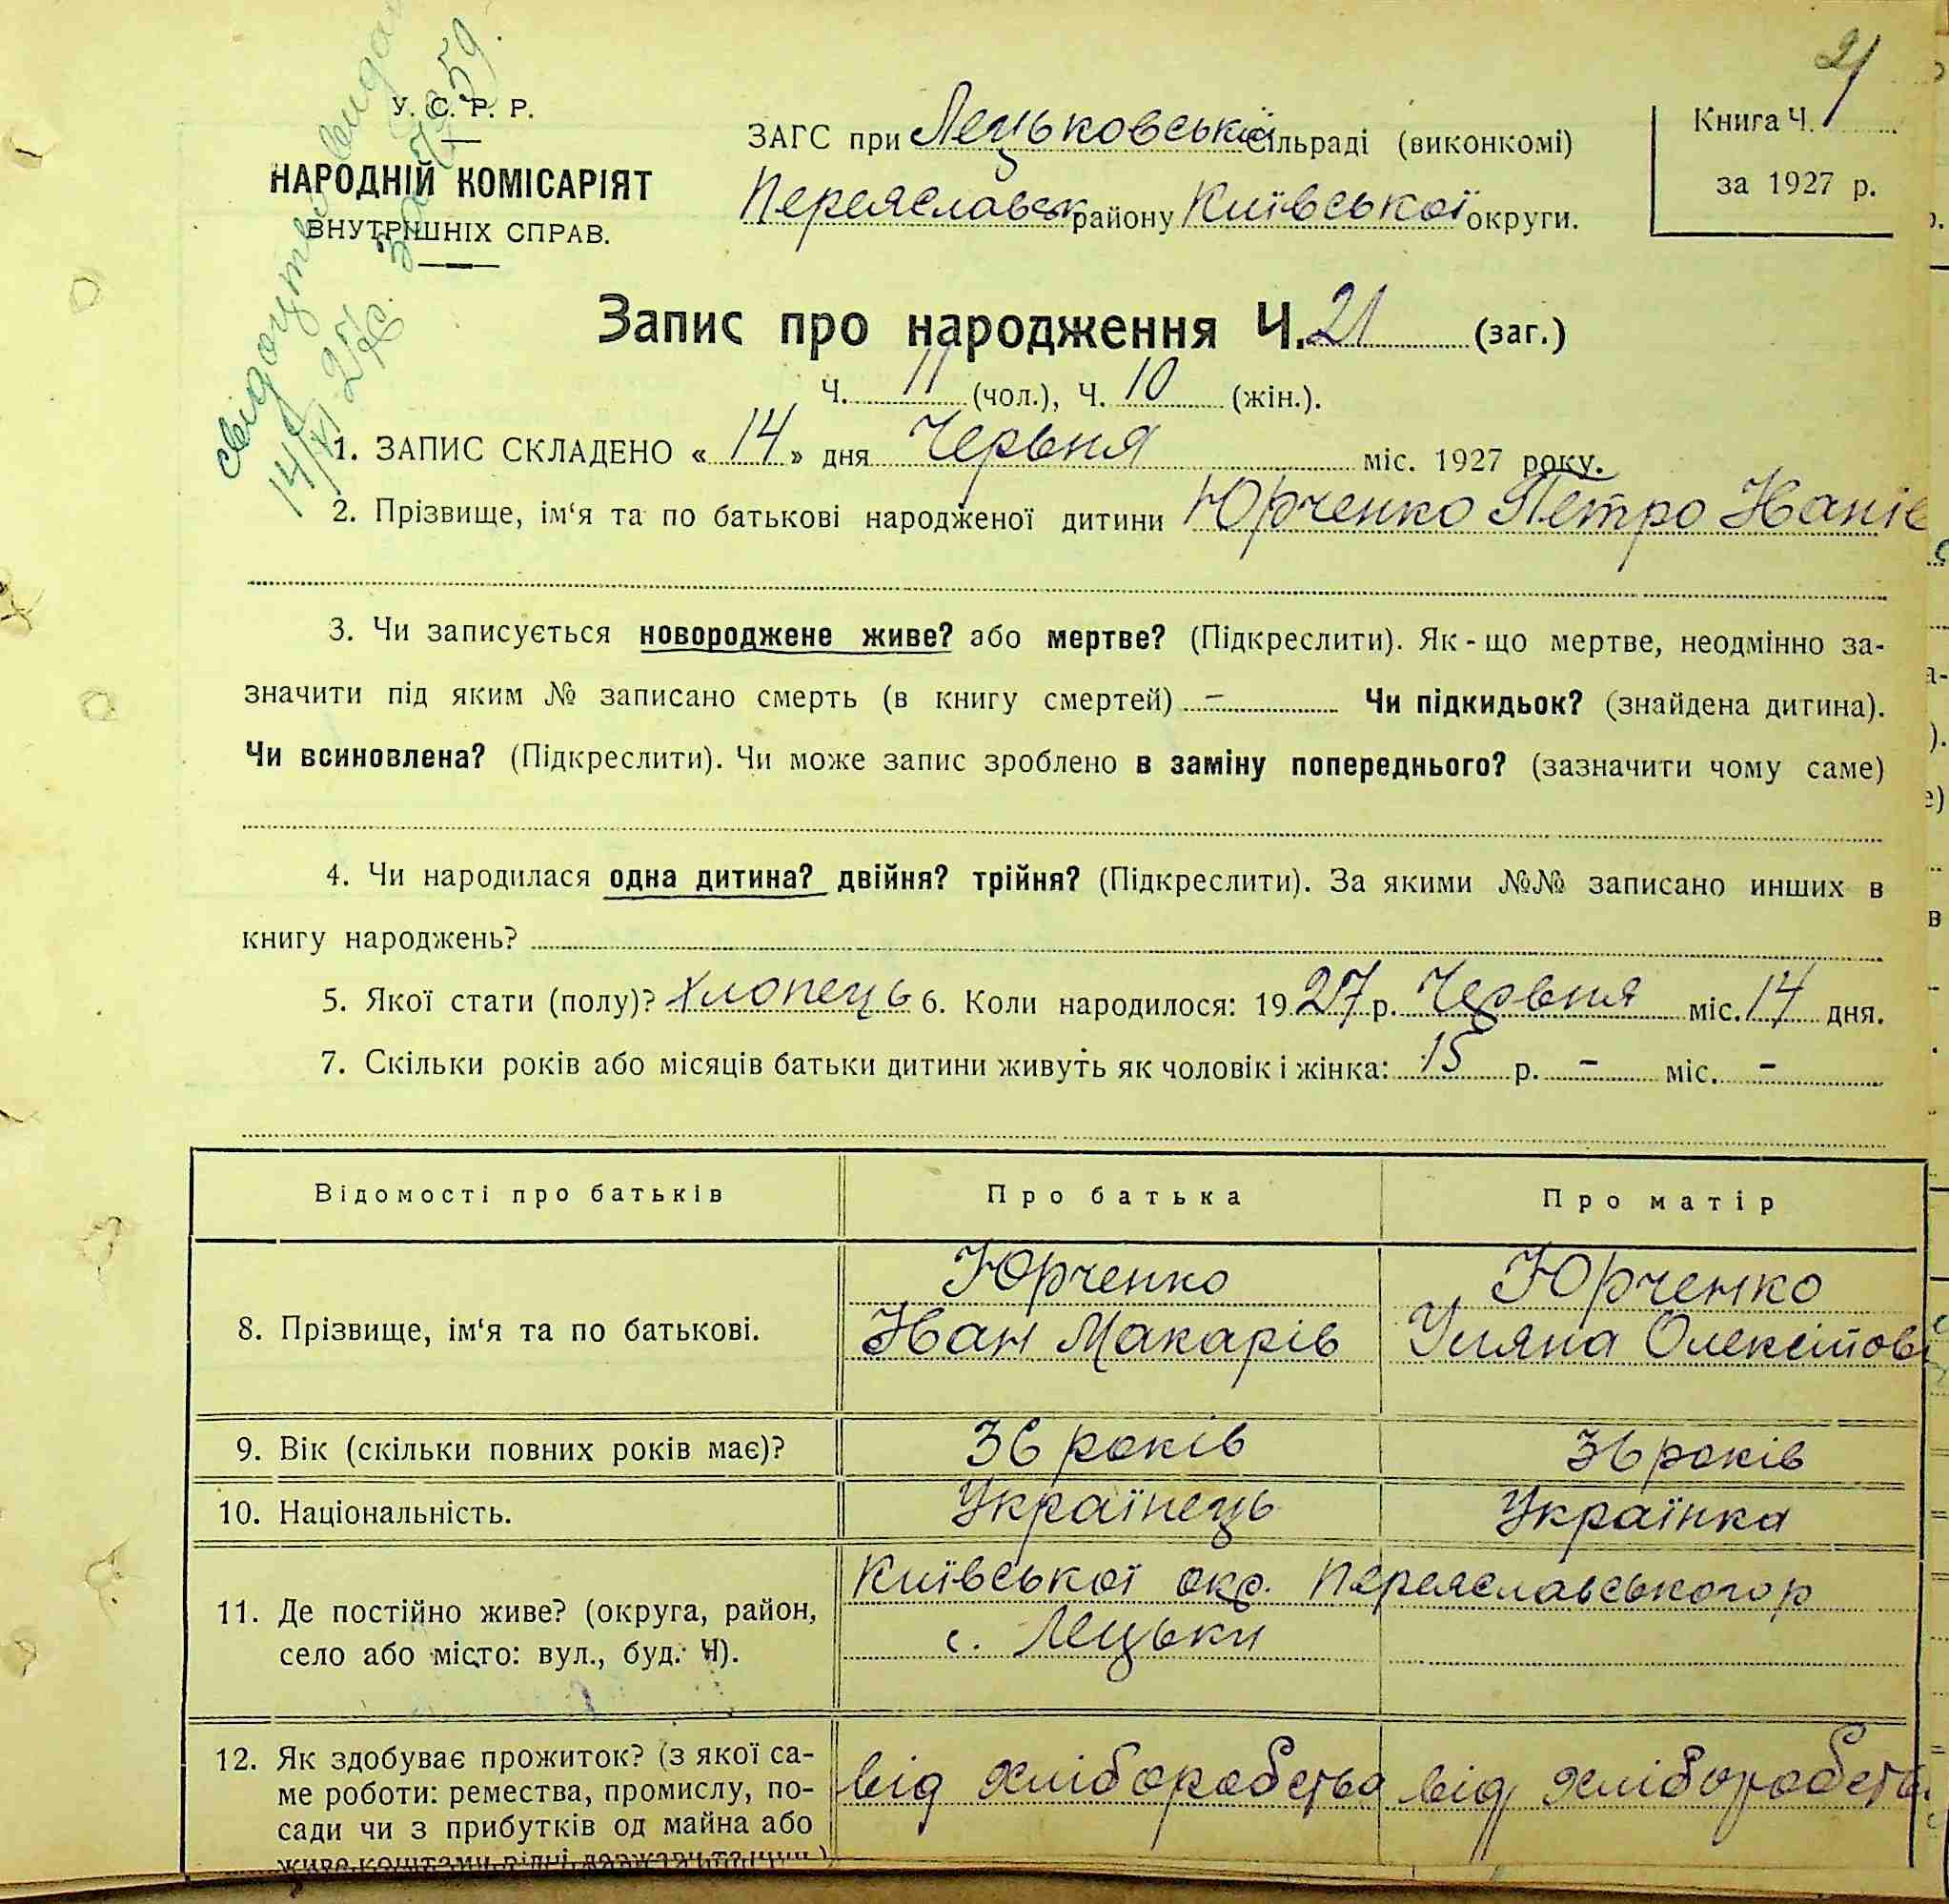 21
У. С. Р. Р.
НАРОДНІЙ КОМІСАРІЯТ
ВНУТРІШНІХ СПРАВ.
ЗАГС при Лецьковській сільраді (виконкомі)
Переяславськ району Київської округи.
Книга Ч.
за 1927 р.
Запис про народження Ч. 21 (заг.)
Ч. 11 (чол.), Ч. 10 (жін.).
1. ЗАПИС СКЛАДЕНО « 14 » дня Червня міс. 1927 року.
2. Прізвище, ім‘я та по батькові народженої дитини Юрченко Петро Іванів
3. Чи записується новороджене живе? або мертве? (Підкреслити). Як-що мертве, неодмінно за-
значити під яким № записано смерть (в книгу смертей) – Чи підкидьок? (знайдена дитина).
Чи всиновлена? (Підкреслити). Чи може запис зроблено в заміну попереднього? (зазначити чому саме)
4. Чи народилася одна дитина? двійня? трійня? (Підкреслити). За якими №№ записано инших в
книгу народжень?
5. Якої стати (полу)? хлопець 6. Коли народилося: 1927 р. Червня міс. 14 дня.
7. Скільки років або місяців батьки дитини живуть як чоловік і жінка: 15 р. – міс. –
Відомості про батьків Про батька Про матір
8. Прізвище, ім‘я та по батькові.
Юрченко
Іван Макарів
Юрченко
Уляна Олексіїов
9. Вік (скільки повних років має)? 36 років 36 років
10. Національність. Українець Українка
11. Де постійно живе? (округа, район,
село або місто: вул., буд. Ч).
Київської окр. Переяславського р
с. Лецьки
12. Як здобуває прожиток? (з якої са-
ме роботи: ремества, промислу, по-
сади чи з прибутків од майна або
живе коштами рідні, держави та инш.)
від хліборобства від хліборобств
свідоцтво видан
14/XI